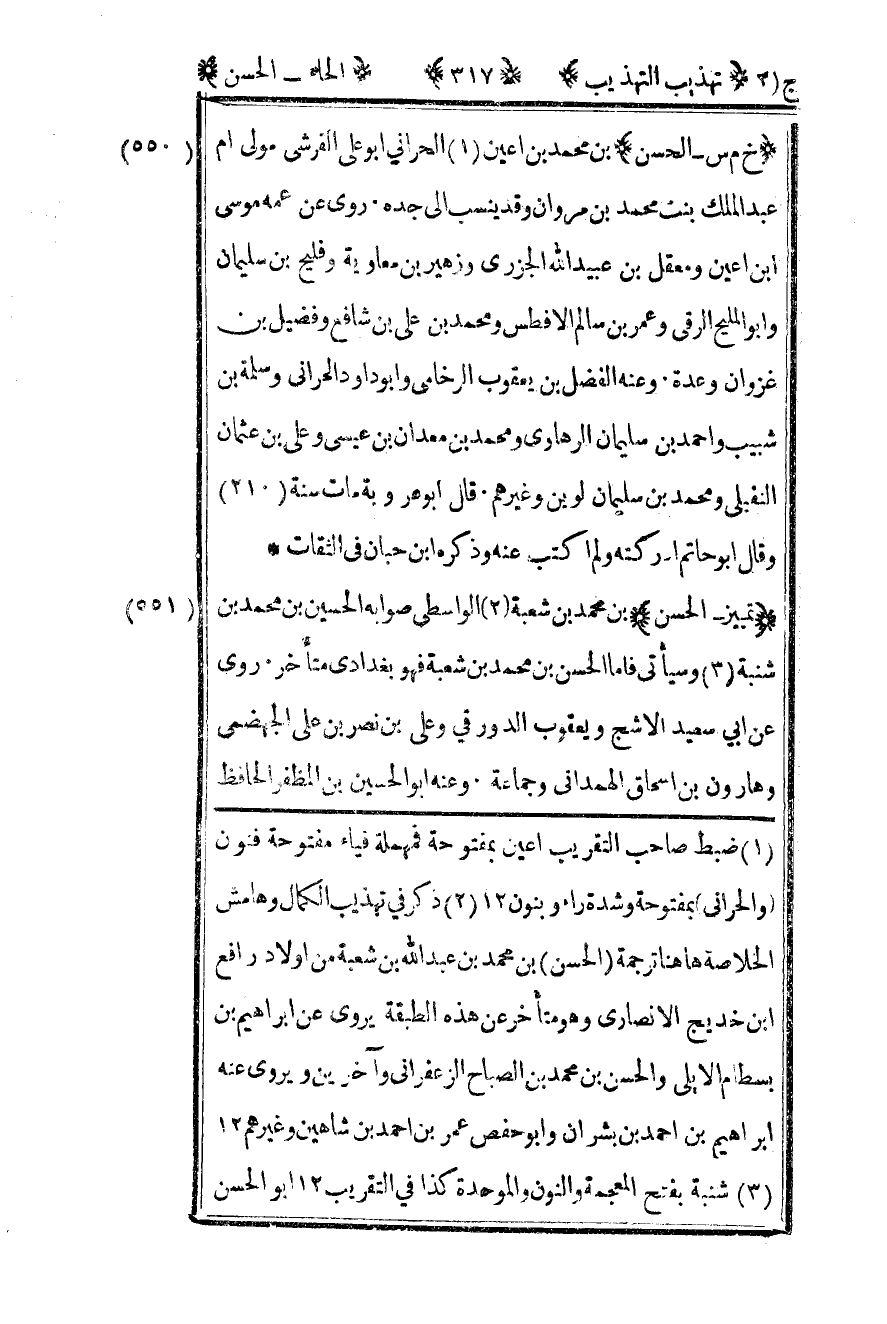 ج (٢) ﴿ تهذيب التهذيب ﴾ ﴿ ٣١٧ ﴾ ﴿ الحاء ـ الحسن ﴾
﴿ خ م س ـ الحسن ﴾ بن محمد بن اعين (١) الحراني ابو على القرشى مولى ام (٥٥٠)
عبد الملك بنت محمد بن مروان وقد ينسب الى جده ٠ روى عن عمه موسى
ابن اعين ومعقل بن عبيد الله الجزرى وزهير بن معاوية وفليح بن سليمان
وابو المليح الرقى وعمر بن سالم الافطس ومحمد بن على بن شافع وفضيل بن
غزوان وعدة ٠ وعنه الفضل بن يعقوب الرخامى وابو داود الحرانى وسلمة بن
شبيب واحمد بن سليمان الرهاوى ومحمد بن معدان بن عيسى وعلى بن عثمان
النفيلى ومحمد بن سليمان لوين وغيرهم ٠ قال ابو عروبة مات سنة (٢١٠)
وقال ابو حاتم ادركته ولم اكتب عنه وذكره ابن حبان فى الثقات *
﴿ تمييز ـ الحسن ﴾ بن محمد بن شعبة (٢) الواسطى صوابه الحسين بن محمد بن (٥٥١)
شنبة (٣) وسيأتى فاما الحسن بن محمد بن شعبة فهو بغدادى متأخر ٠ روى
عن ابي سعيد الاشج ويعقوب الدورقي وعلى بن نصر بن على الجهضمى
وهارون بن اسحاق الهمدانى وجماعة ٠ وعنه ابو الحسين بن المظفر الحافظ
(١) ضبط صاحب التقريب اعين بمفتوحة فمهملة فياء مفتوحة فنون
(والحرانى) بمفتوحة وشدة راء وبنون ١٢ (٢) ذكر في تهذيب الكمال وهامش
الخلاصة هاهنا ترجمة (الحسن) بن محمد بن عبد الله بن شعبة من اولاد رافع
ابن خديج الانصارى وهو متأخر عن هذه الطبقة يروى عن ابراهيم بن
بسطام الابلى والحسن بن محمد بن الصباح الزعفرانى وآخرين ويروى عنه
ابراهيم بن احمد بن بشران وابو حفص عمر بن احمد بن شاهين وغيرهم ١٢
(٣) شنبة بفتح المعجمة والنون والموحدة كذا في التقريب ١٢ ابو الحسن